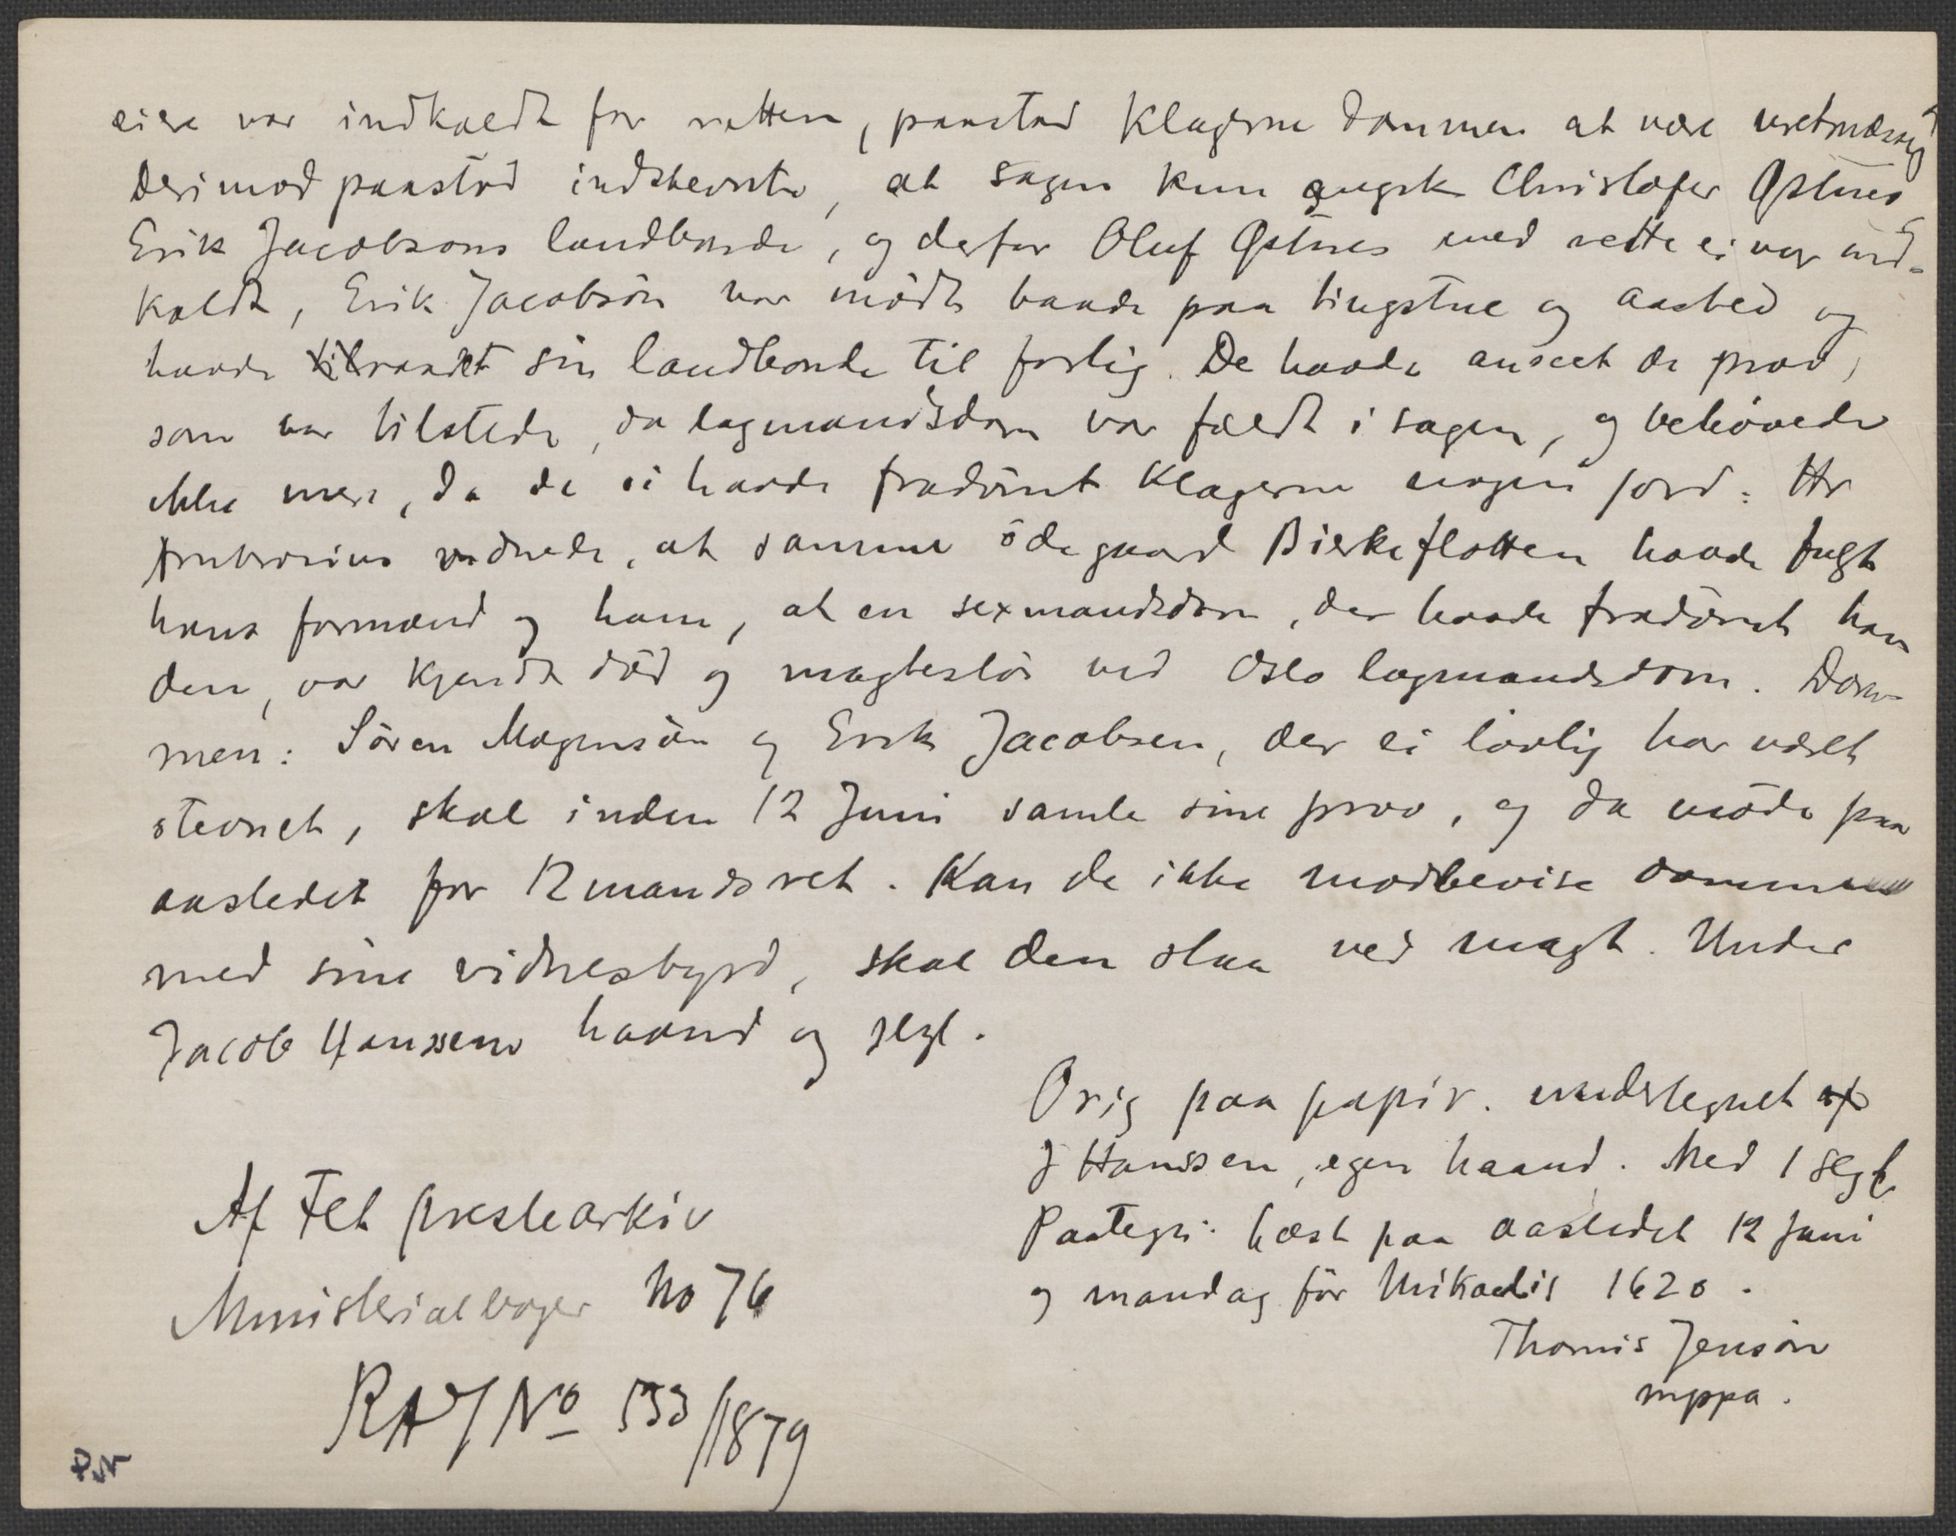 eiere var indkaldt for retten, paastod klagerne dommen at være uretmæssig
Derimod paastod indstevnte, at sagen kun angik Christofer Østnes
Erik Jacobsons landbonde, og derfor Oluf Østnes med rette ei var ind-
kaldt, Erik Jacobsön var mödt baade paa tingstue og aasted og
havde raadet sin landbonde til forlig. De havde anseet de prov,
som var tilstede, da lagmandsdom var fældt i sagen, og behövede
ikke mere, da de ei havde fradömt klagerne nogen jord. Hr
Ambrosius vidnede, at samme ödegaard Birkeflotten havde fulgt
hans formænd og ham, at en sexmandsdom, der havde fradömt ham
den, var kjendt död og magteslös ved Oslo lagmandsdom. Dom-
men: Sören Mogensön og Erik Jacobsen, der ei lovlig har været
stevnet, skal inden 12 Juni samle sine prov, og da möde paa
aastedet for 12mandsret. Kan de ikke modbevise dommen
med sine vidnesbyrd, skal den staa ved magt. Under
Jacob Hanssens haand og segl.
Orig paa papir. undertegnet af
J Hanssen, egen haand. Med 1 segl
Paategn: Læst paa aastedet 12 Juni
og mandag för Mikaelis 1620.
Thomis Jensön
mppa.
Af Fet prestearkiv
Ministerialboger No 76
RAJ No 533/1879